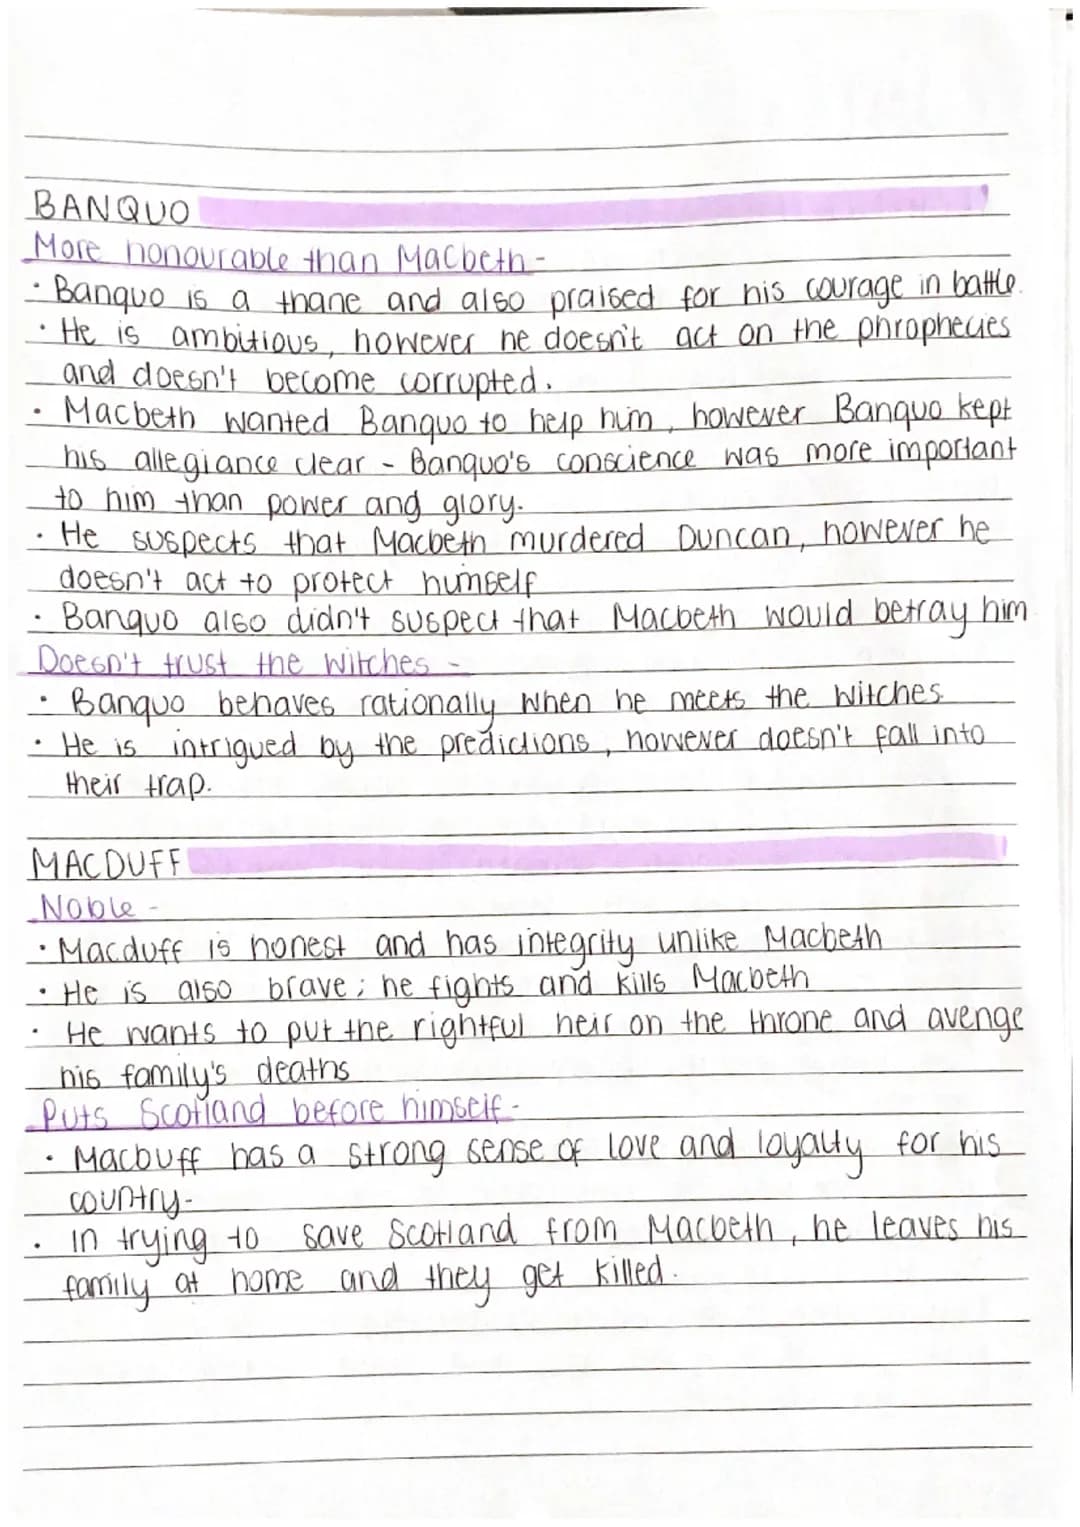 BANQUO
More honourable than Macbeth -
· Banquo is a thane and also praised for his courage in battle.
· He is ambitious, however he doesn't act on the phrophecies
and doesn't become corrupted.
· Macbeth wanted Banquo to help him, however Banquo kept
his allegiance clear - Banquo's conscience was more important
to him than power and glory.
· He suspects that Macbeth murdered Duncan, however he
doesn't act to protect humself
· Banquo also didn't suspect that Macbeth would betray him
Doesn't trust the witches -
· Banquo behaves rationally when he meets the witches
· He is intrigued by the predictions, however doesn't fall into
their trap.
MACDUFF
Noble -
· Macduff is honest and has integrity unlike Macbeth
· He is also brave; he fights and kills Macbeth
· He wants to put the rightful heir on the throne and avenge
his family's deaths
Puts Scotland before himself -
· Macbuff has a strong sense of love and loyalty for his
country-
· In trying to save Scotland from Macbeth, he leaves his
family at home and they get killed.